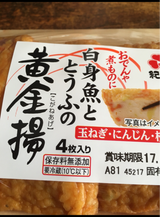 おでんや
煮ものに
紀
白身魚と
とうふの
黄金揚
【こがねあげ】
4枚入り
保存料無添加
要冷蔵(10℃以下)
写真はイメー
玉ねぎ・にんじん・
賞味期限17.
A81 45217 固